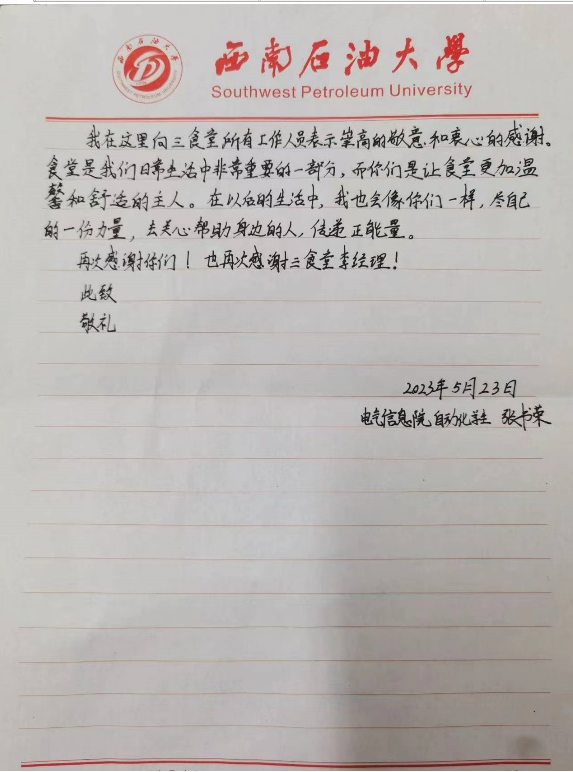 西南石油大學
Southwest Petroleum University
我在这里向三食堂所有工作人员表示崇高的敬意和衷心的感谢。
食堂是我们日常生活中非常重要的一部分，而你们是让食堂更加温
馨和舒适的主人。在以后的生活中，我也会像你们一样，尽自己
的一份力量，去关心帮助身边的人，传递正能量。
再次感谢你们！也再次感谢三食堂李经理！
此致
敬礼
2023年5月23日
电气信息院自动化学生 张书荣